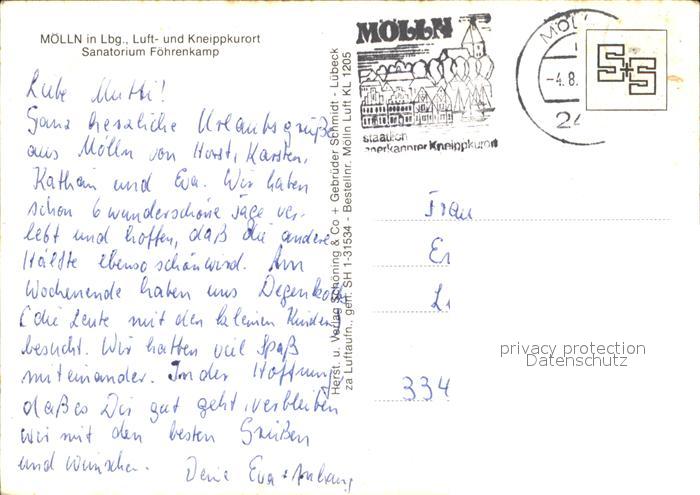 MÖLLN in Lbg., Luft- und Kneippkurort
Sanatorium Föhrenkamp
Liebe Mutti!
Ganz herzliche Urlaubsgrüße
aus Mölln von Horst, Karsten,
Kathrin und Eva. Wir haben
schon 6 wunderschöne Tage ver-
lebt und hoffen, daß die andere
Hälfte ebenso schön wird. Am
Wochenende haben uns
(die Leute mit den kleinen Kindern
besucht. Wir hatten viel Spaß
miteinander. In der Hoffnung
daß es Dir gut geht, verbleiben
wir mit den besten Grüßen
und wünschen.
Deine Eva + Anhang
Herst. u. Verlag Schöning & Co + Gebrüder Schmidt - Lübeck
za Luftaufn., gen. SH 1-31534 - Bestellnr. Mölln Luft KL 1205
MÖLLN
staatlich
anerkannter Kneippkurort
MÖL
-4.8.
24
S+S
Frau
Er
334
privacy protection
Datenschutz